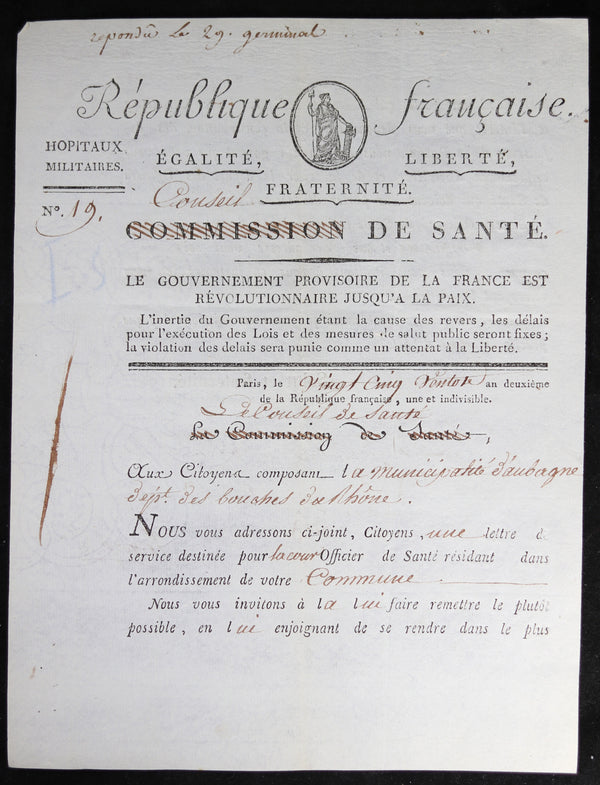 repondu le 29. germinal
République française.
HOPITAUX MILITAIRES.
ÉGALITÉ, LIBERTÉ,
FRATERNITÉ.
Nº. 19.
Conseil
COMMISSION DE SANTÉ.
LE GOUVERNEMENT PROVISOIRE DE LA FRANCE EST
RÉVOLUTIONNAIRE JUSQU'A LA PAIX.
L'inertie du Gouvernement étant la cause des revers, les délais
pour l'exécution des Lois et des mesures de salut public seront fixes;
la violation des delais sera punie comme un attentat à la Liberté.
Paris, le Vingt Cinq Ventose an deuxième
de la République française, une et indivisible.
Le Conseil de santé
La Commission de Santé,
Aux Citoyens composant la municipalité d'aubagne
dept. des bouches du Rhône.
NOUS vous adressons ci-joint, Citoyens, une lettre de
service destinée pour lacour Officier de Santé résidant dans
l'arrondissement de votre Commune
Nous vous invitons à la lui faire remettre le plutôt
possible, en lui enjoignant de se rendre dans le plus